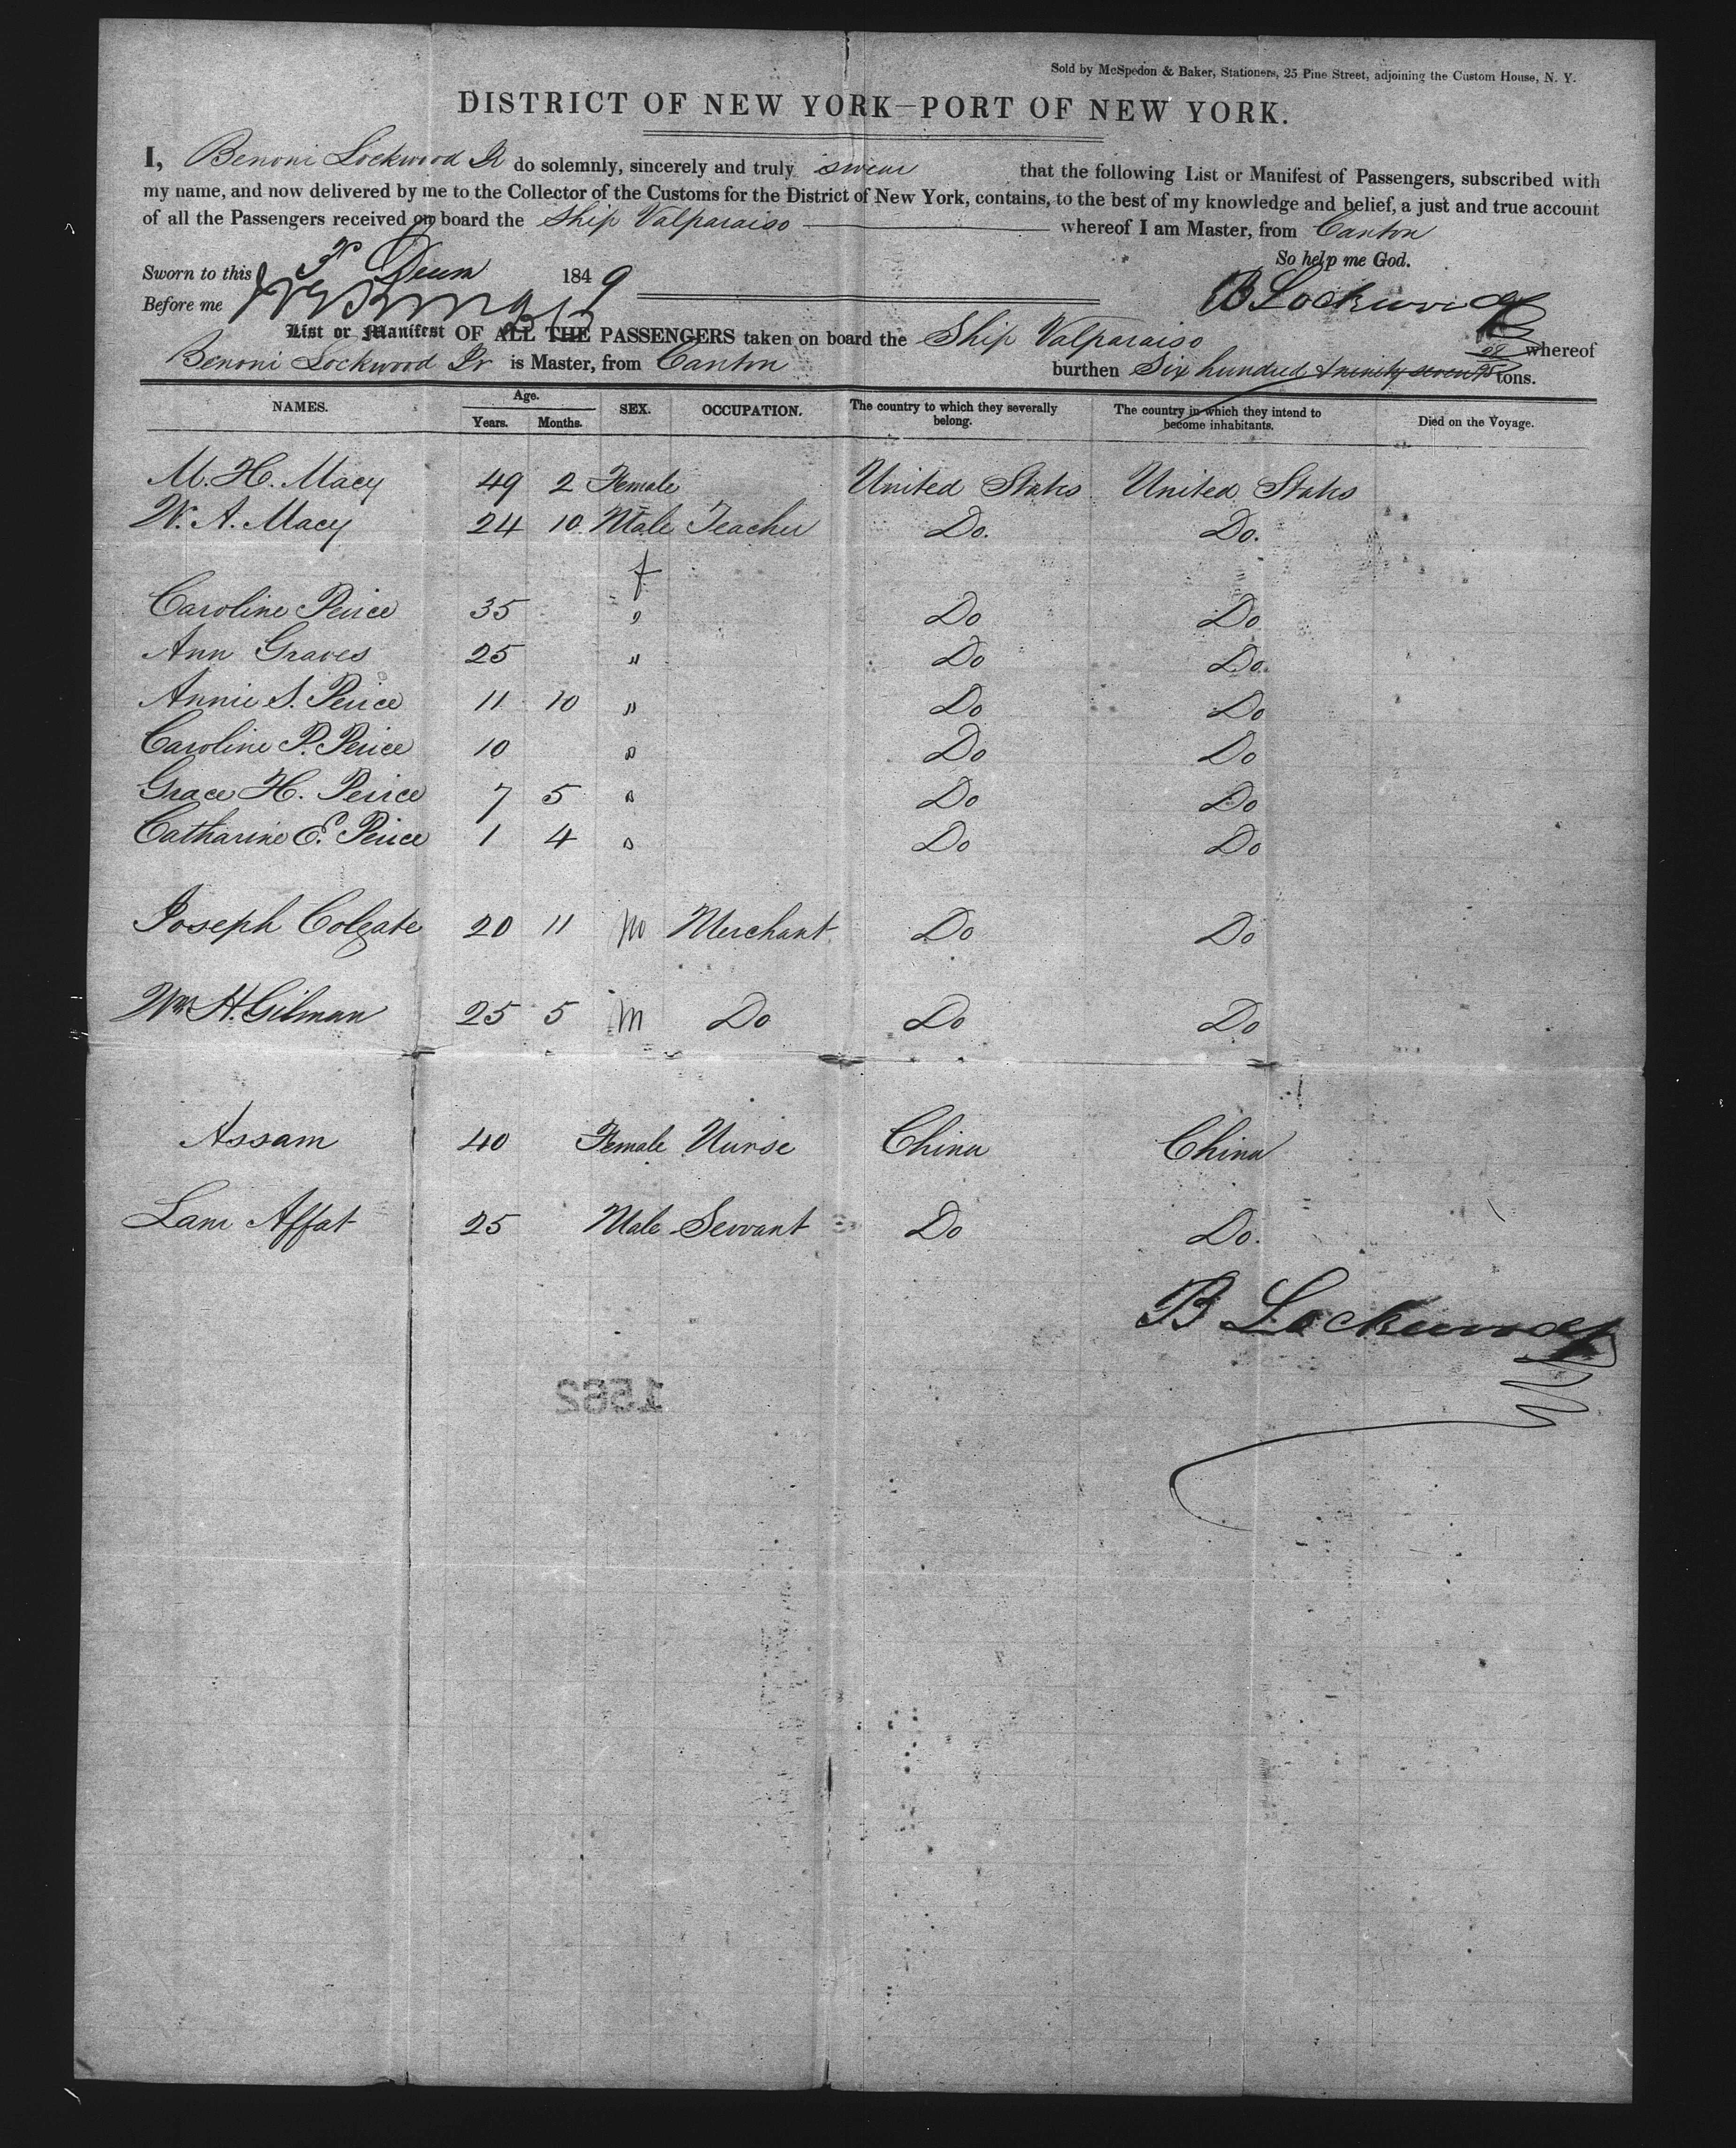 Sold by McSpedon & Baker, Stationers, 25 Pine Street, adjoining the Custom House, N. Y.
DISTRICT OF NEW YORK—PORT OF NEW YORK.
I, Benoni Lockwood Jr do solemnly, sincerely and truly swear that the following List or Manifest of Passengers, subscribed with
my name, and now delivered by me to the Collector of the Customs for the District of New York, contains, to the best of my knowledge and belief, a just and true account
of all the Passengers received on board the Ship Valparaiso whereof I am Master, from Canton
So help me God.
Sworn to this 3 Decem 1849
Before me
B Lockwood
List or Manifest OF ALL THE PASSENGERS taken on board the Ship Valparaiso whereof
Benoni Lockwood Jr is Master, from Canton burthen Six hundred & ninety seven tons.
NAMES. Age. Years. Months. SEX. OCCUPATION. The country to which they severally belong. The country in which they intend to become inhabitants. Died on the Voyage.
M. H. Macy 49 2 Female United States United States
W. A. Macy 24 10 Male Teacher Do. Do.
f
Caroline Peirce 35 " Do Do
Ann Graves 25 " Do Do.
Annie S. Peirce 11 10 " Do Do
Caroline P. Peirce 10 " Do Do
Grace H. Peirce 7 5 " Do Do
Catharine E. Peirce 1 4 " Do Do
Joseph Colgate 20 11 m Merchant Do Do
Wm H. Gilman 25 5 m Do Do Do
Assam 40 Female Nurse China China
Lam Affat 25 Male Servant Do Do.
B Lockwood
1562